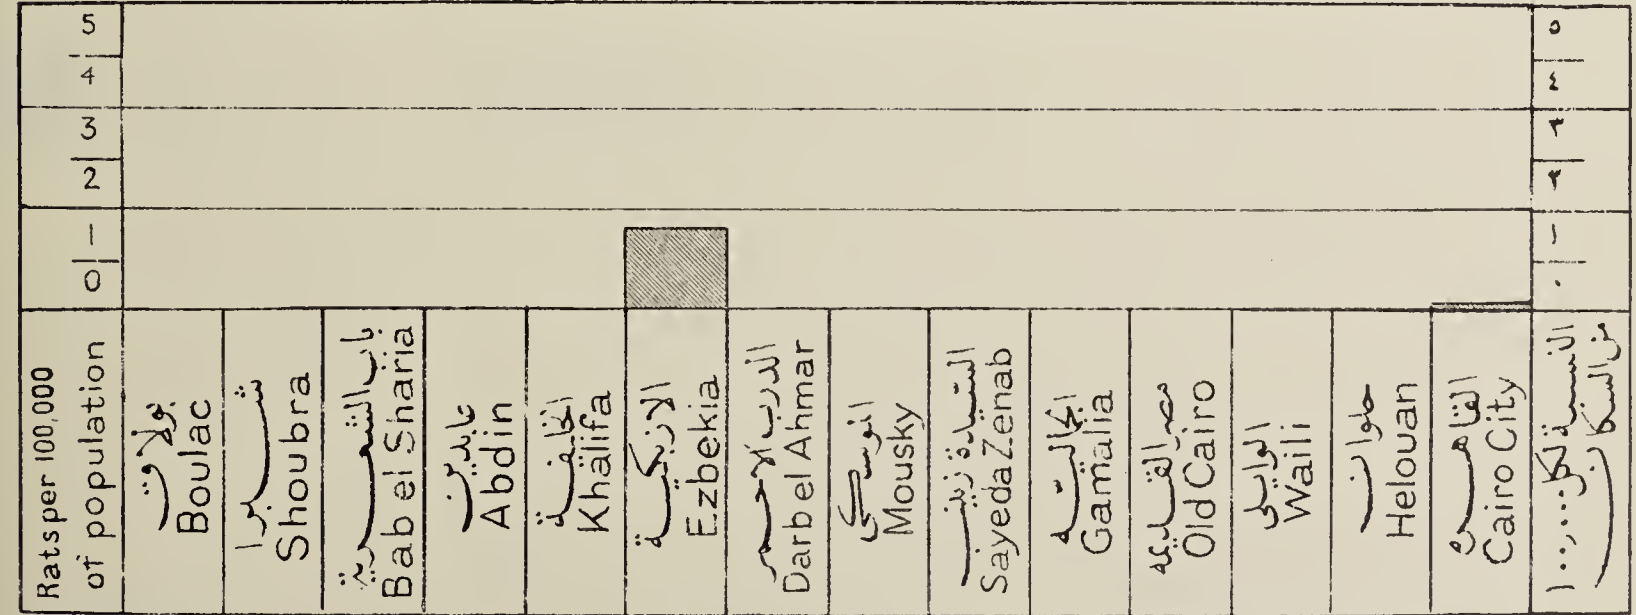 5
4
3
2
1
0
Rats per 100,000
of population
بولاق
Boulac
شبرا
Shoubra
باب الشعرية
Bab el Sharia
عابدين
Abdin
الخليفة
Khalifa
الازبكية
Ezbekia
الدرب الاحمر
Darb el Ahmar
الموسكي
Mousky
السيدة زينب
Sayeda Zenab
الجمالية
Gamalia
مصر القديمة
Old Cairo
الوايلى
Waili
حلوان
Helouan
القاهرة
Cairo City
٥
٤
٣
٢
١
٠
النسبة لكل ١٠٠,٠٠٠
من السكان